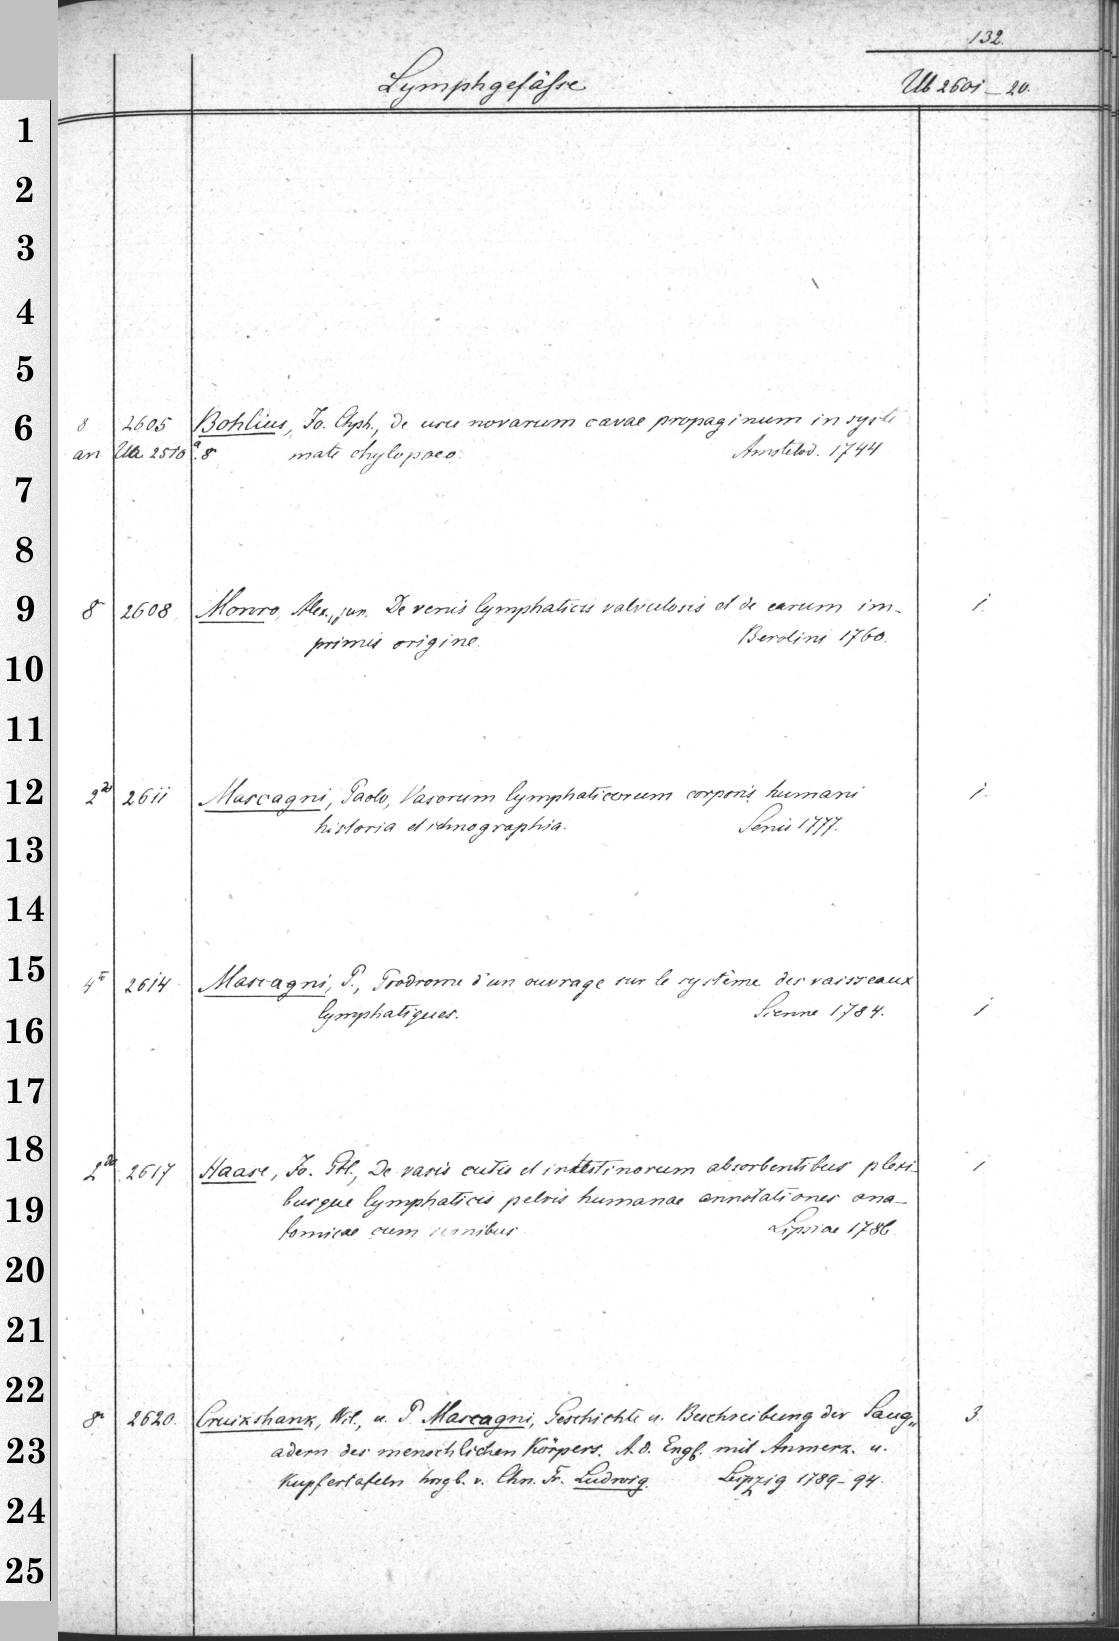 132.
Lymphgefäße
Ub 2601–20.
1
2
3
4
5
6
8 2605 Bohlius, Jo. Chph., de usu novarum cavae propaginum in syste
an Ua 2510 a. 8 mate chylopoeo. Amstelod. 1744
7
8
9
8° 2608 Monro, Alex., jun. De venis lymphaticis valvulosis et de earum im- 1.
primis origine. Berolini 1760.
10
11
12
2do 2611 Mascagni, Paolo, Vasorum lymphaticorum corporis humani 1.
historia et ichnographia. Senis 1777.
13
14
15
4to 2614 Mascagni, P., Prodrome d'un ouvrage sur le système des vaisseaux
lymphatiques. Sienne 1784. 1
16
17
18
2do 2617 Haase, Jo. Gtl., De vasis cutis et intestinorum absorbentibus plexi- 1
busque lymphaticis pelvis humanae annotationes ana-
19
tomicae cum iconibus Lipsiae 1786
20
21
22
8° 2620. Cruikshank, Wil., u. P. Mascagni, Geschichte u. Beschreibung der Saug„ 3.
adern des menschlichen Körpers. A. d. Engl. mit Anmerk. u.
23
Kupfertafeln hrsgb. v. Chn. Fr. Ludwig. Leipzig 1789–94.
24
25